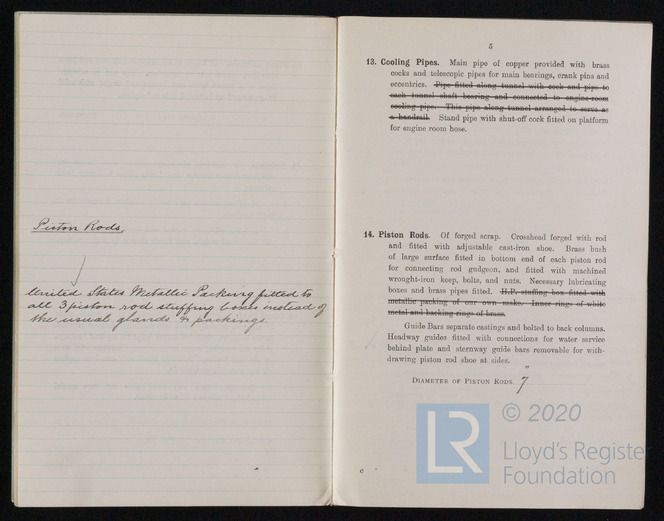 Piston Rods.
United States Metallic Packing fitted to
all 3 piston rod stuffing boxes instead of
the usual glands & packings
5
13. Cooling Pipes. Main pipe of copper provided with brass
cocks and telescopic pipes for main bearings, crank pins and
eccentrics. Pipe fitted along tunnel with cock and pipe to
each tunnel shaft bearing and connected to engine-room
cooling pipe. This pipe along tunnel arranged to serve as
a handrail. Stand pipe with shut-off cock fitted on platform
for engine room hose.
14. Piston Rods. Of forged scrap. Crosshead forged with rod
and fitted with adjustable cast-iron shoe. Brass bush
of large surface fitted in bottom end of each piston rod
for connecting rod gudgeon, and fitted with machined
wrought-iron keep, bolts, and nuts. Necessary lubricating
boxes and brass pipes fitted. H.P. stuffing box fitted with
metallic packing of our own make. Inner rings of white
metal and backing rings of brass.
Guide Bars separate castings and bolted to back columns.
Headway guides fitted with connections for water service
behind plate and sternway guide bars removable for with-
drawing piston rod shoe at sides.
DIAMETER OF PISTON RODS 7"
C
LR
© 2020
Lloyd's Register
Foundation